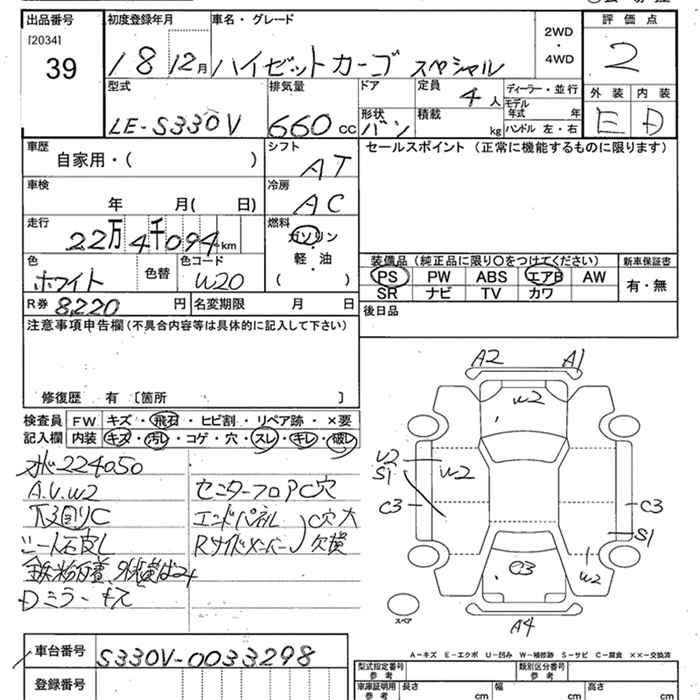 出品番号 初度登録年月 車名・グレード 評価点
[2034]
39 18 12月 ハイゼットカーゴ スペシャル 2WD・4WD 2
型式 排気量 ドア 定員 4人 ディーラー・並行 外装 内装
モデル年式 年
LE-S330V 660cc 形状 バン 積載 kg ハンドル 左・右 E D
車歴 シフト セールスポイント (正常に機能するものに限ります)
自家用・( ) AT
車検 冷房
年 月( 日) AC
走行 燃料
22万4千094km ガソリン・軽油 ( )
色 色替 色コード 装備品(純正品に限り○をつけてください) 新車保証書
ホワイト W20 PS PW ABS エアB AW 有・無
SR ナビ TV カワ
R券 8220円 名変期限 月 日 後日品
注意事項申告欄(不具合内容等は具体的に記入して下さい)
修復歴 有 〔箇所 〕
検査員 FW キズ・飛石・ヒビ割・リペア跡・×要
記入欄 内装 キズ・汚レ・コゲ・穴・スレ・キレ・破レ
水224050
A.V.W2 センターフロアC穴
下回りC エンドパネル C穴大
シート石皮し Rサイドメンバー 欠損
Dミラーキズ
A2 A1
W2
U2
S1
W2
C3 C3
S1
C3
W2
スペア
A4
A-キズ E-エクボ U-凹み W-補修跡 S-サビ C-腐食 ××-交換済
車台番号 S330V-0033298
型式指定番号 参考 類別区分番号 参考
登録番号 車庫証明用 参考 長さ cm 幅 cm 高さ cm